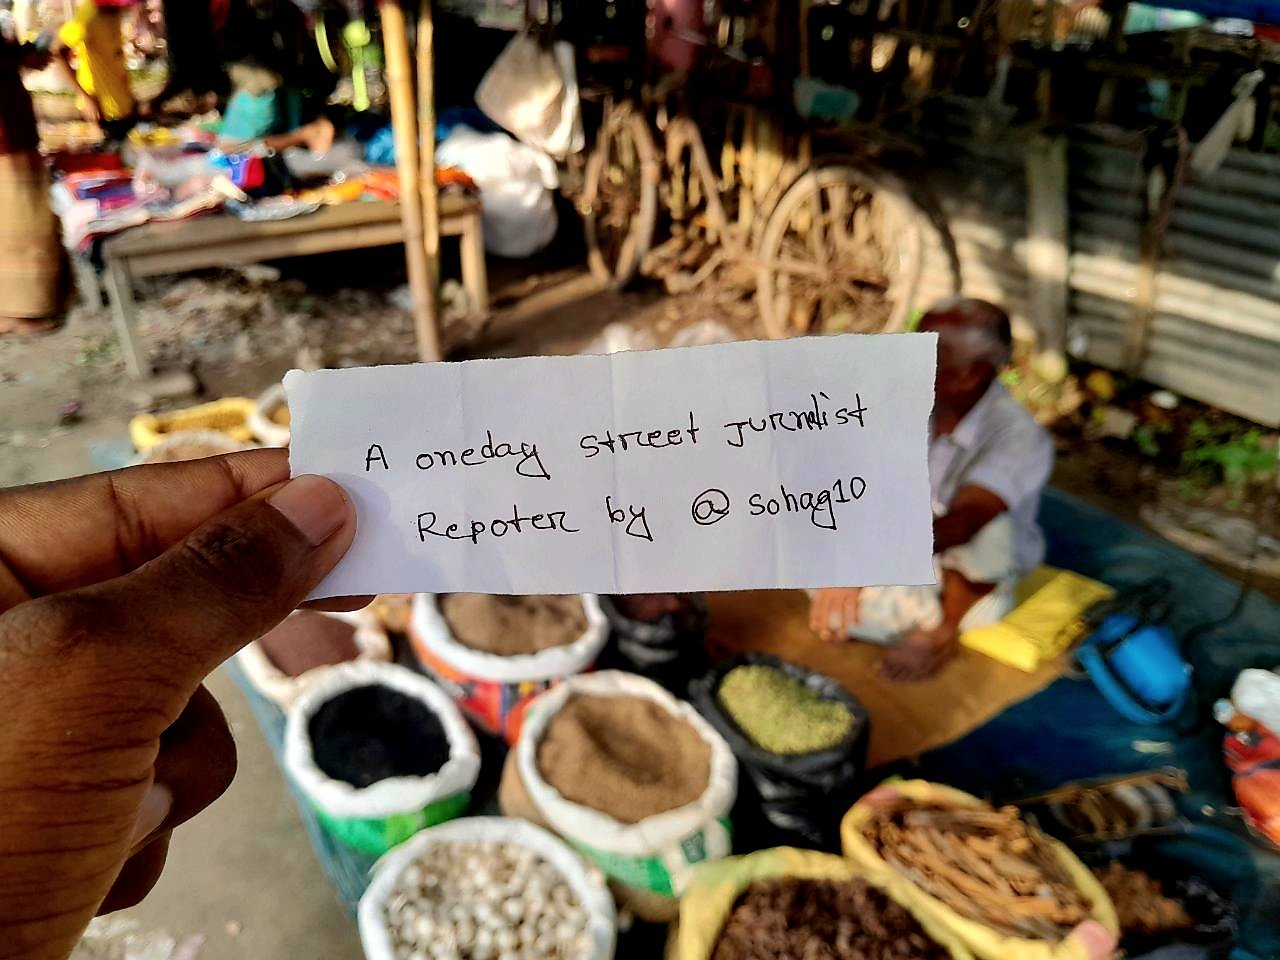 A oneday street Jurnalist
Repoter by @sohag10